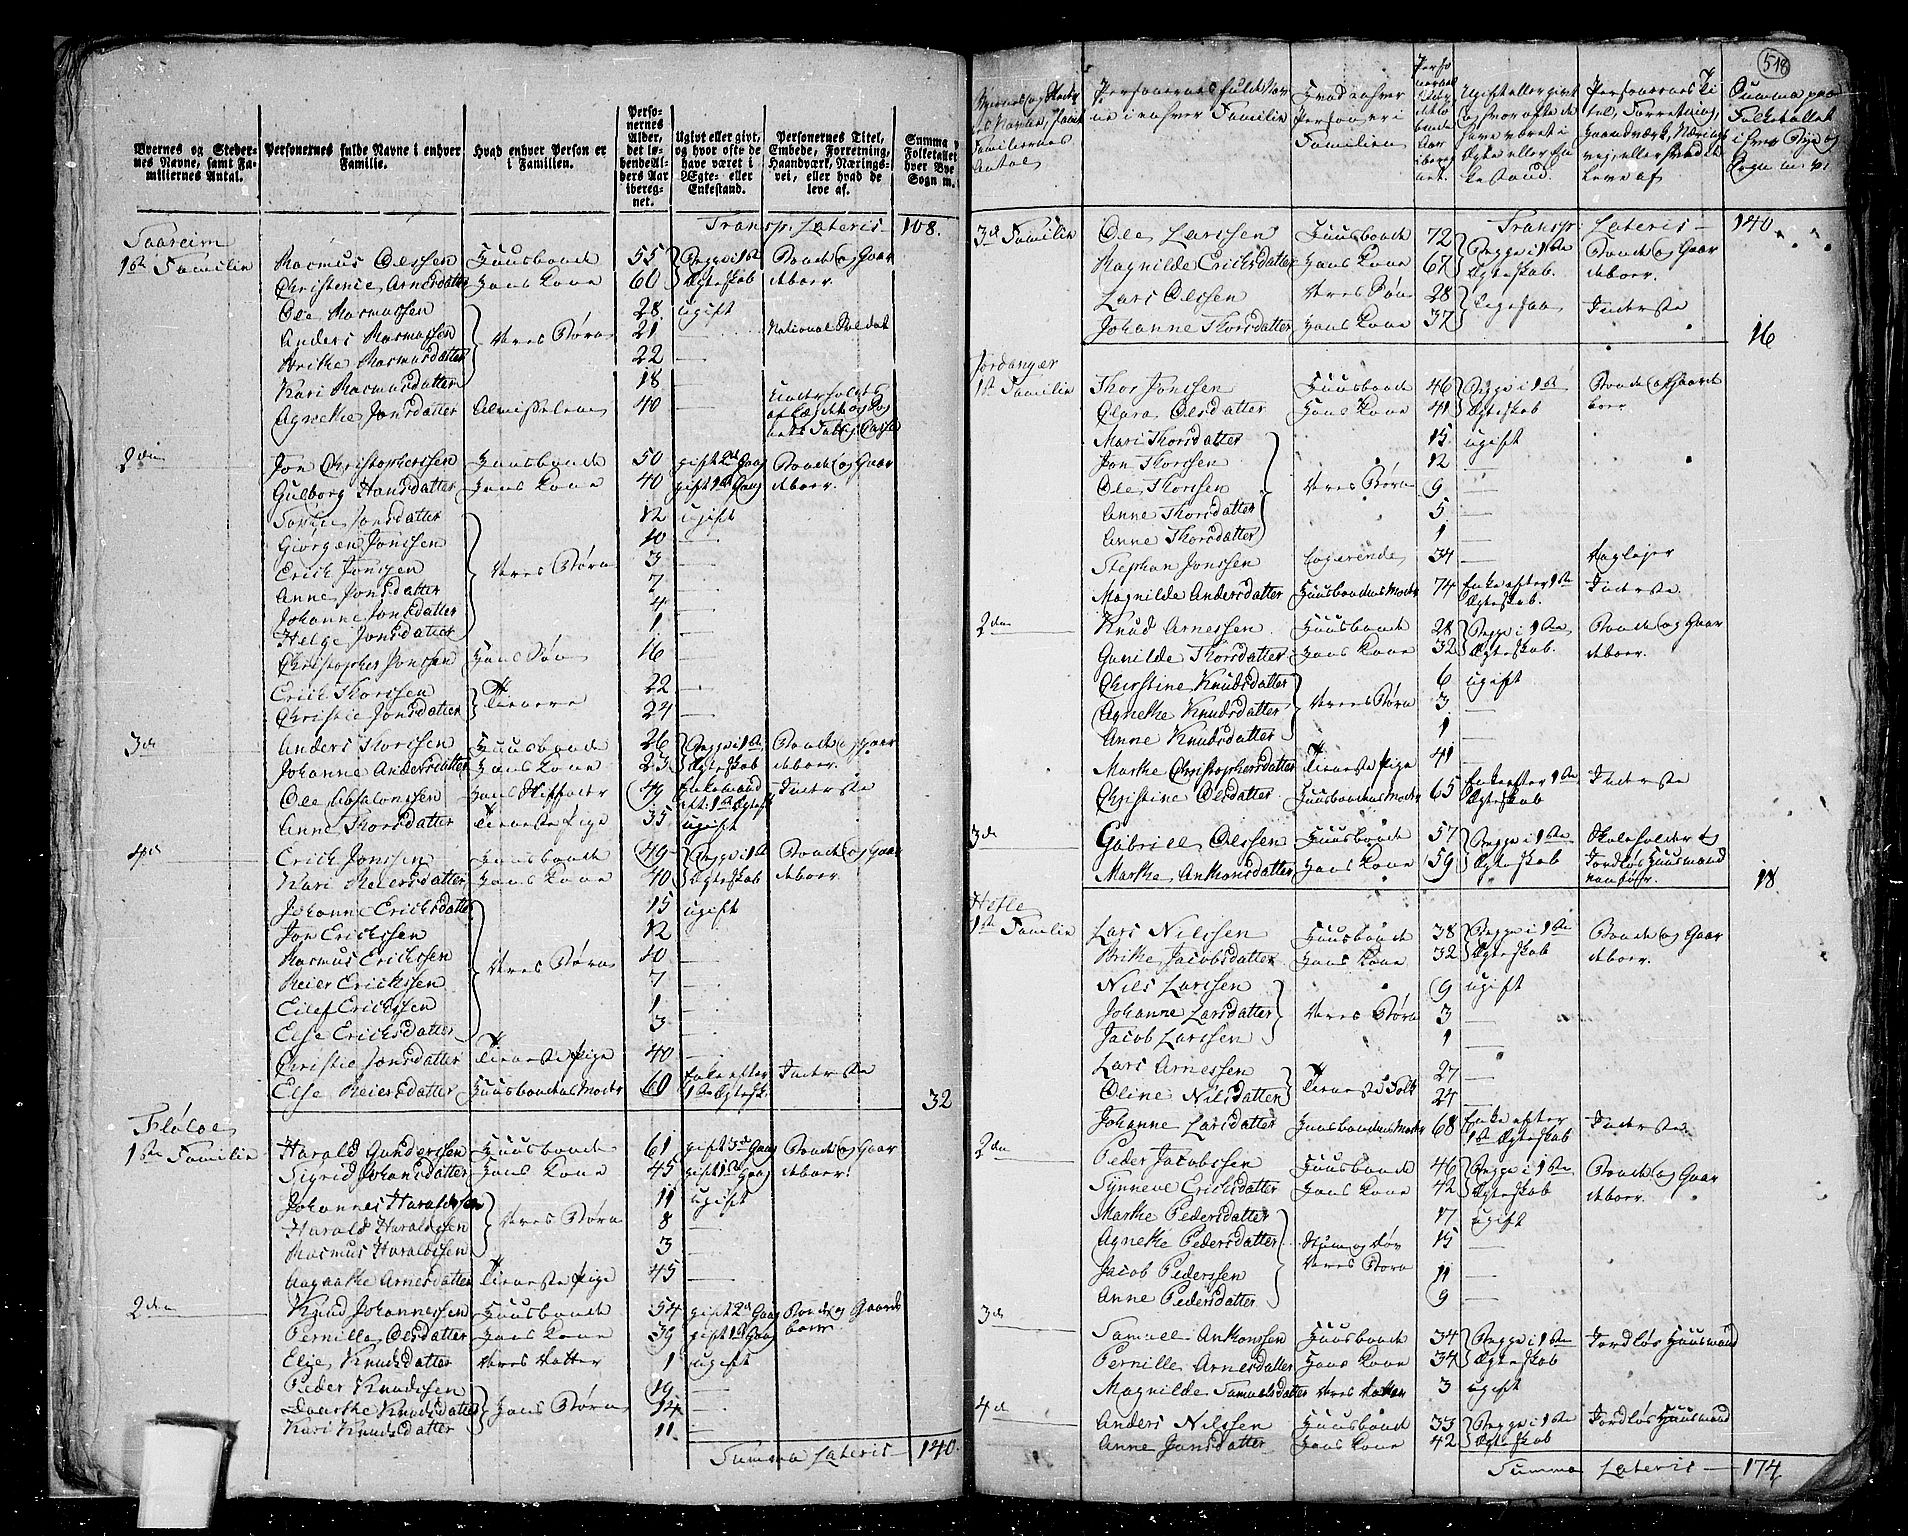 Byernes og Stedernes Navne, samt Familiernes Antal.
Personernes fulde Navne i enhver Familie.
Hvad enhver Person er i Familien.
Personernes Alder, det løbende Alders Aar iberegnet.
Ugivt eller givt, og hvor ofte de have været i Ægte- eller Enkestand.
Personernes Titel, Embede, Forretning, Haandværk, Næringsvei, eller hvad de leve af.
Summa
Folketallet
hver Bye
Sogn m.
Transp. Lateris 108.
Taareim
1ste Familie Rasmus Olessen Huusbonde 55 Begge i 1ste Bonde og Gaar
Christence Arnesdatter Hans Kone 60 Ægteskab deboer.
Ole Rasmussen 28 ugift
Anders Rasmussen Deres Børn 21 National Soldat
Brithe Rasmusdatter 22 —
Kari Rasmusdatter 18 —
Agnethe Jonsdatter Almisselem 40 — Underholdes
2den Jon Christophersen Huusbonde 50 gift 2d Gang Bonde og Gaar
Gulborg Hansdatter Hans Kone 40 gift 1st Gang deboer.
Jonsdatter 12 ugift
Giørgen Jonssen 10 —
Erich Jonssen Deres Børn 3
Anne Jonsdatter 7
Johanne Jonsdatter 4
Helge Jonsdatter 1
Christopher Jonssen Hans Søn 16 —
Erich Thorssen 22 —
Christie Jonsdatter Tienere 24 —
3de Anders Thorssen Huusbonde 26 Begge i 1ste Bonde og Gaar
Johanne Andersdatter Hans Kone 23 Ægteskab deboer.
Ole Absalonssen Hans Stiffader 49 Enkemand Inderste
Anne Thorsdatter Tieneste Pige 35 ugift
4de Erich Jonssen Huusbonde 49 Begge i 1ste Bonde og Gaar
Kari Reiersdatter Hans Kone 40 Ægteskab deboer.
Johanne Erichsdatter 15 ugift
Jon Erichssen 12
Rasmus Erichssen 10
Reier Erichssen Deres Børn 7
Eilef Erichssen 1
Else Erichsdatter 3
Christie Jonsdatter Tieneste Pige 40 —
Else Reiersdatter Huusbondens Moder 60 Enke efter 1ste Ægtesk. Inderste
32
Fløloe
1ste Familie Harald Gundersen Huusbonde 61 gift 3de Gang Bonde og Gaar
Sigrid Johansdatter Hans Kone 45 gift 1st Gang deboer.
Johannes Haraldssen 11 ugift
Harald Haraldssen Deres Børn 8 —
Rasmus Haraldssen 3 —
Aagaathe Arnesdatter Tieneste Pige 45 —
2den Knud Johannessen Huusbonde 54 gift 2d Gang Bonde og Gaard
Pernille Olsdatter Hans Kone 39 gift 1st Gang boer
Elje Knudsdatter Deres Datter 1 ugift
Peder Knudssen 19 —
Daarthe Knudsdatter Hans Børn 14 —
Kari Knudsdatter 11 —
Summa Lateris 140.
518
Personernes fulde Nav
ne i enhver Familie
Hvad enhver
Person er i
Familien
Ugift eller givt
og hvor ofte de
have været i
Ægte eller En
kestand.
Personernes Ti
tel, Forretning,
Haandværk, Nærings
vej, eller hvad de
leve af
Summa paa
Folketallet
i hver Bye og
Sogn m. v.
Transp. Lateris 140
3de Familie Ole Larssen Huusbonde 72 Begge i 1ste Bonde og Gaar
Magnilde Erichsdatter Hans Kone 67 Ægteskab. deboer
Lars Olessen Deres Søn 28 Ligesaa Inderste
Johanne Thorsdatter Hans Kone 37
16
Jordanger
1ste Familie Thor Jonssen Huusbonde 46 Begge i 1ste Bonde og Gaarde
Clara Olsdatter Hans Kone 41 Ægteskab boer
Mari Thorsdatter 15 ugift
Jon Thorssen 12 —
Ole Thorssen Deres Børn 9 —
Anne Thorsdatter 5 —
Anne Thorsdatter 1 —
Stephan Jonssen Logerende 34 — Daglejer
Magnilde Andersdatter Huusbondens Moder 74 Enke efter 1ste Ægteskab. Inderste.
2den Knud Arnessen Huusbonde 28 Begge i 1ste Bonde og Gaar
Gunilde Thorsdatter Hans Kone 32 Ægteskab. deboer.
Christine Knudsdatter 6 ugift
Agnethe Knudsdatter Deres Børn 3 —
Anne Knudsdatter 1 —
Marthe Christophersdatter Tieneste Pige 41 —
Christine Olsdatter Huusbondens Moder 65 Enke efter 1ste Ægteskab Inderste
3de Gabriel Olessen Huusbonde 57 Begge i 1ste Skoleholder og
Marthe Anthonsdatter Hans Kone 59 Ægteskab Jordløs Huusmand
18
Hesle
1ste Familie Lars Nilssen Huusbonde 38 Begge i 1ste Bonde og Gaar
Brithe Jacobsdatter Hans Kone 32 Ægteskab deboer.
Nils Larssen 9 ugift
Johanne Larsdatter Deres Børn 3 —
Jacob Larssen 1 —
Lars Arnessen 27 —
Oline Nilsdatter Tieneste Folk 24 —
Johanne Larsdatter Huusbondens Moder 68 Enke efter 1st Ægteskab Inderste
2den Peder Jacobssen Huusbonde 46 Begge i 1ste Bonde og Gaar
Synneve Erichsdatter Hans Kone 42 Ægteskab deboer.
Marthe Pedersdatter 17 ugift
Agnethe Pedersdatter Stum og Døv 15 —
Jacob Pederssen Deres Børn 11 —
Anne Pedersdatter 9 —
3de Samuel Anthonssen Huusbonde 34 Begge i 1ste Jordløs Huusmand
Pernille Arnesdatter Hans Kone 34 Ægteskab
Magnilde Samuelsdatter Deres Datter 3 ugift
4de Anders Nilssen Huusbonde 33 Begge i 1ste Jordløs Huusmand
Anne Jonsdatter Hans Kone 42 Ægteskab
Summa Lateris 174